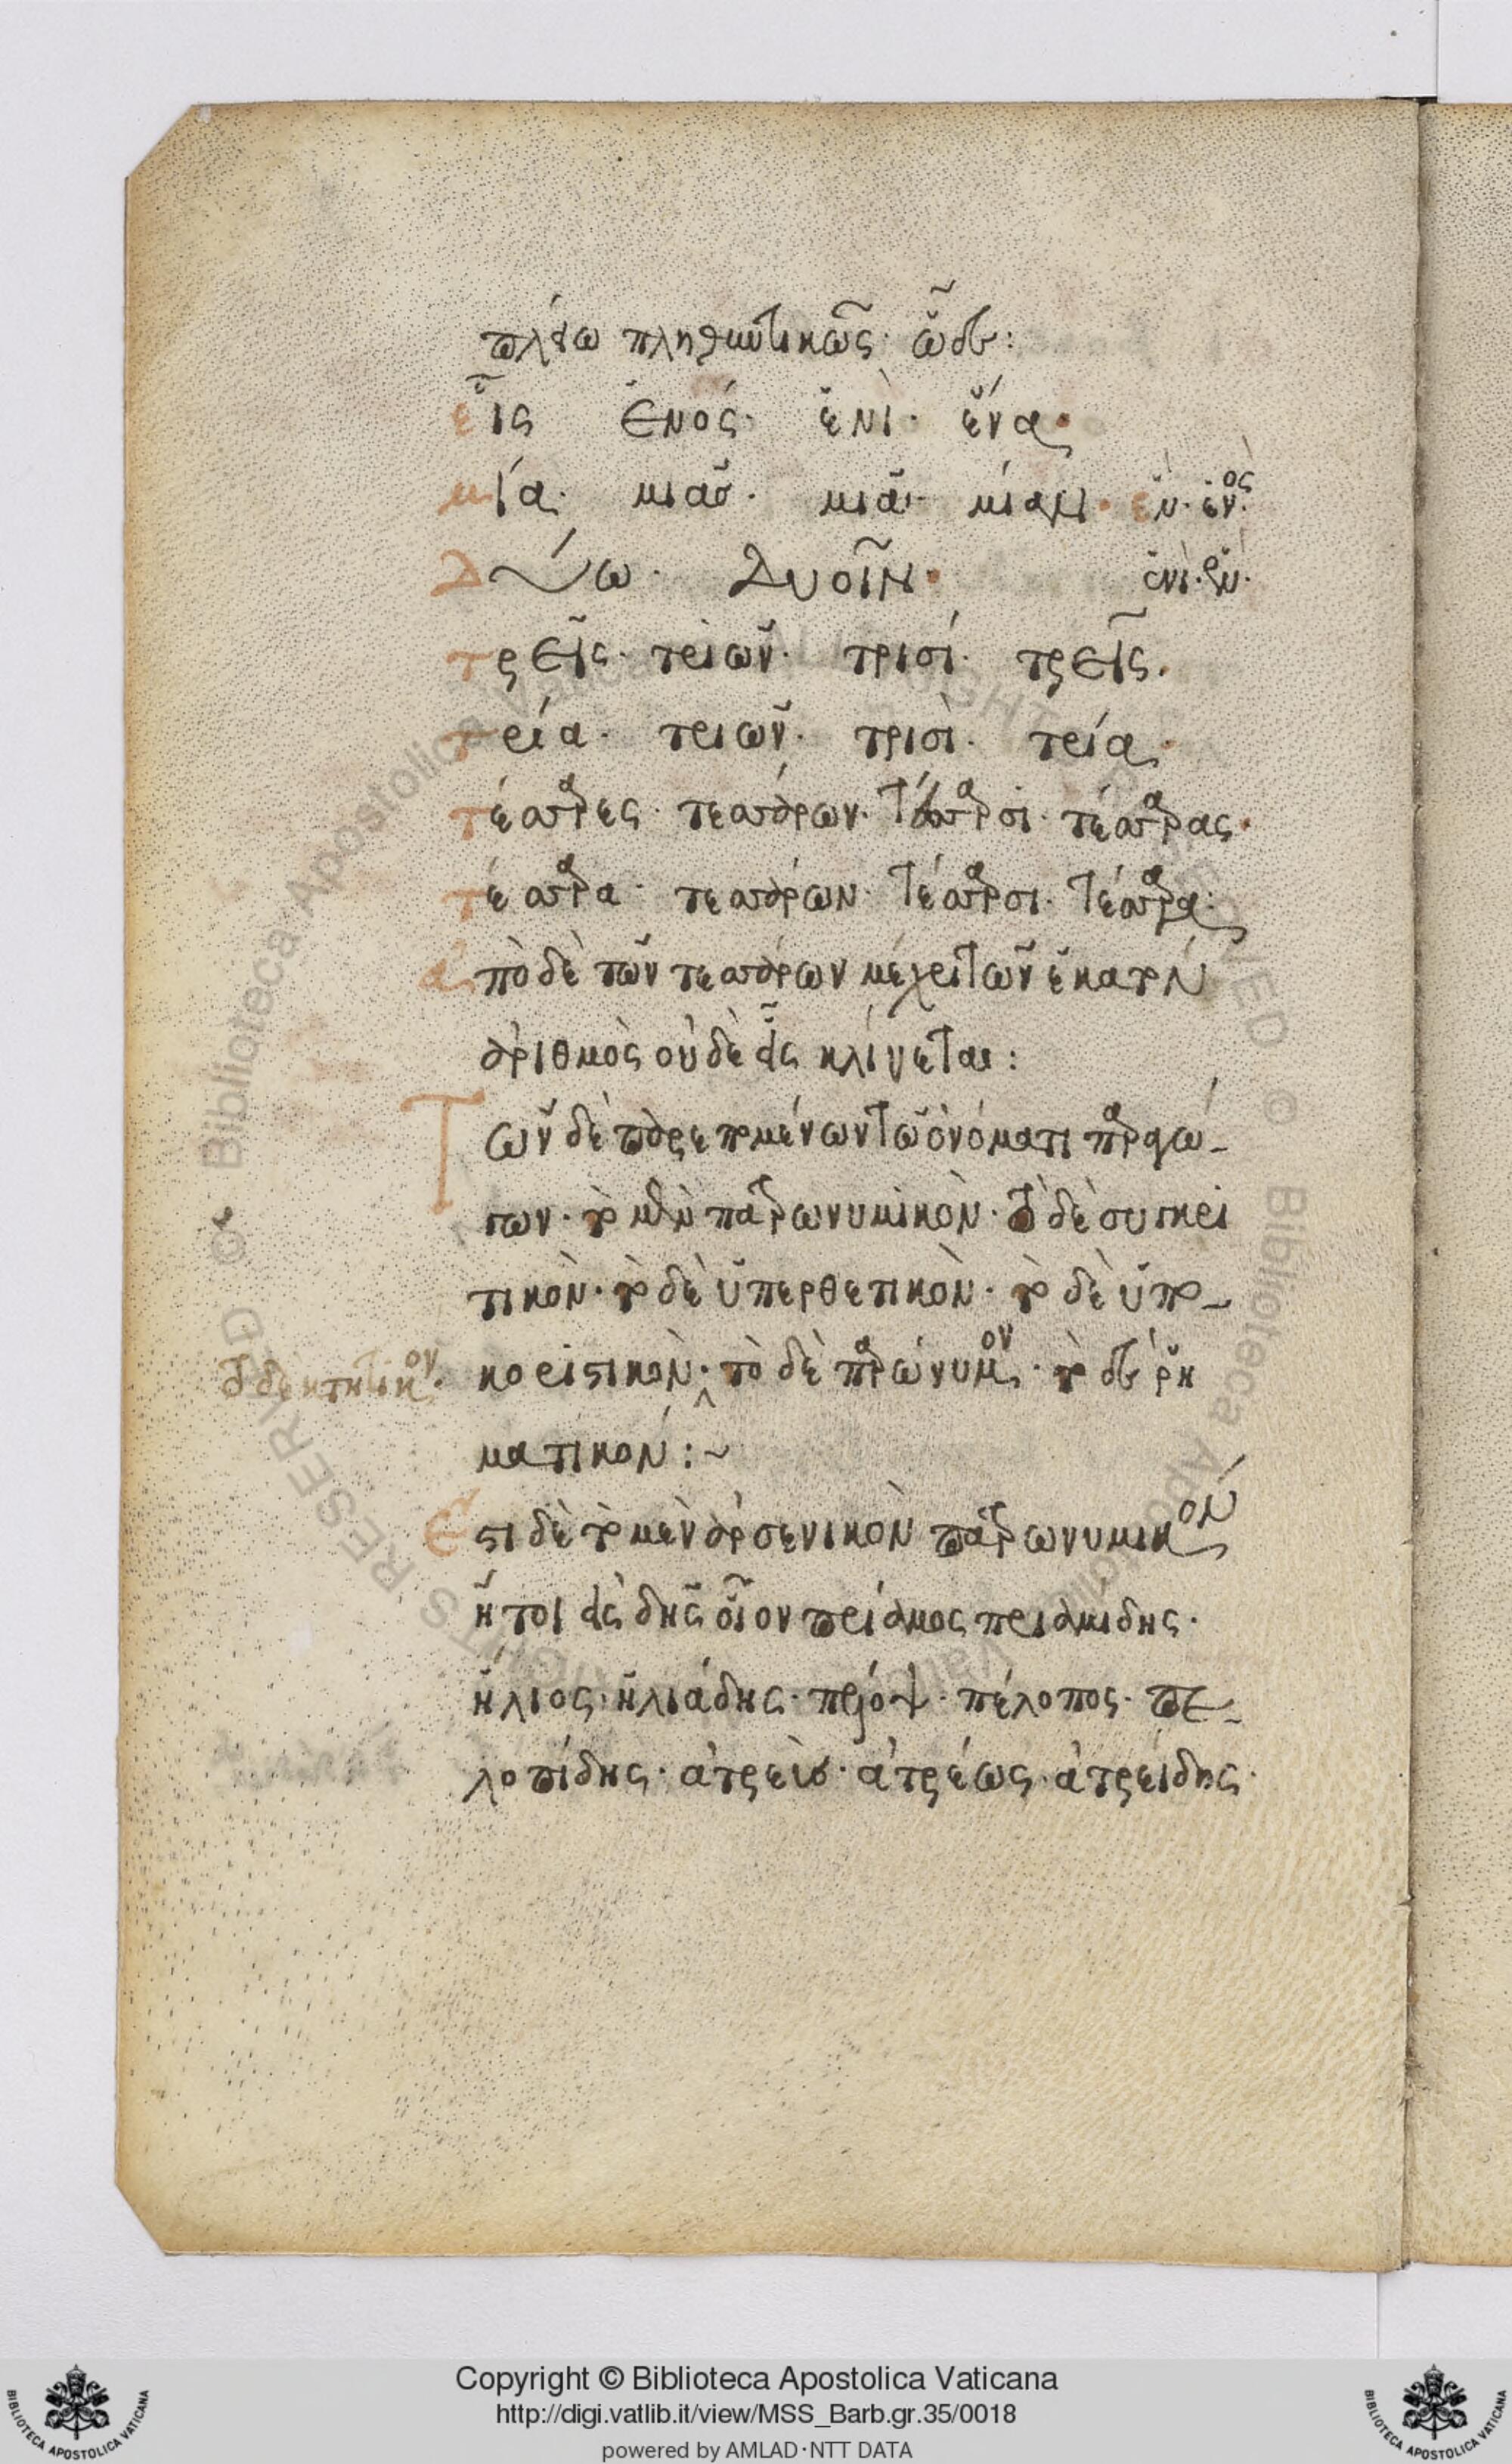 πλέω πληθυντικῶς· ὧδε:
εἷς ἑνός· ἑνὶ· ἕνα·
μία· μιᾶς· μιᾶ· μίαν· ἓν· ἑνὸς·
Δύω· Δυοῖν· ἑνὶ· ἓν·
τρεῖς· τριῶν· τρισί· τρεῖς·
τρία· τριῶν· τρισὶ· τρία·
τέσσαρες· τεσσάρων· τέσσαρσι· τέσσαρας·
τέσσαρα· τεσσάρων· τέσσαρσι· τέσσαρα:
ἀπὸ δὲ τῶν τεσσάρων μέχρι τῶν ἑκατὸν
ἀριθμὸς οὐδεὶς κλίνεται:
Τῶν δὲ παρεπομένων τῶ ὀνόματι παραγώ-
γων· τὸ μὲν πατρωνυμικὸν· τὸ δὲ συγκρι
τικὸν· τὸ δὲ ὑπερθετικὸν· τὸ δὲ ὑπο-
κοριστικὸν· τὸ δὲ παρώνυμον· τὸ δὲ ῥη
τὸ δὲ κτητικὸν·
ματικόν:~
Ἔστι δὲ τὸ μὲν ἀρσενικὸν πατρωνυμικὸν
ἤτοι εἰς δης οἷον πρίαμος πριαμίδης·
ἥλιος· ἡλιάδης· πέλοψ· πέλοπος· πε-
λοπίδης· ἀτρεὺς· ἀτρέως· ἀτρείδης·
Copyright © Biblioteca Apostolica Vaticana
http://digi.vatlib.it/view/MSS_Barb.gr.35/0018
powered by AMLAD·NTT DATA
BIBLIOTECA APOSTOLICA VATICANA
BIBLIOTECA APOSTOLICA VATICANA